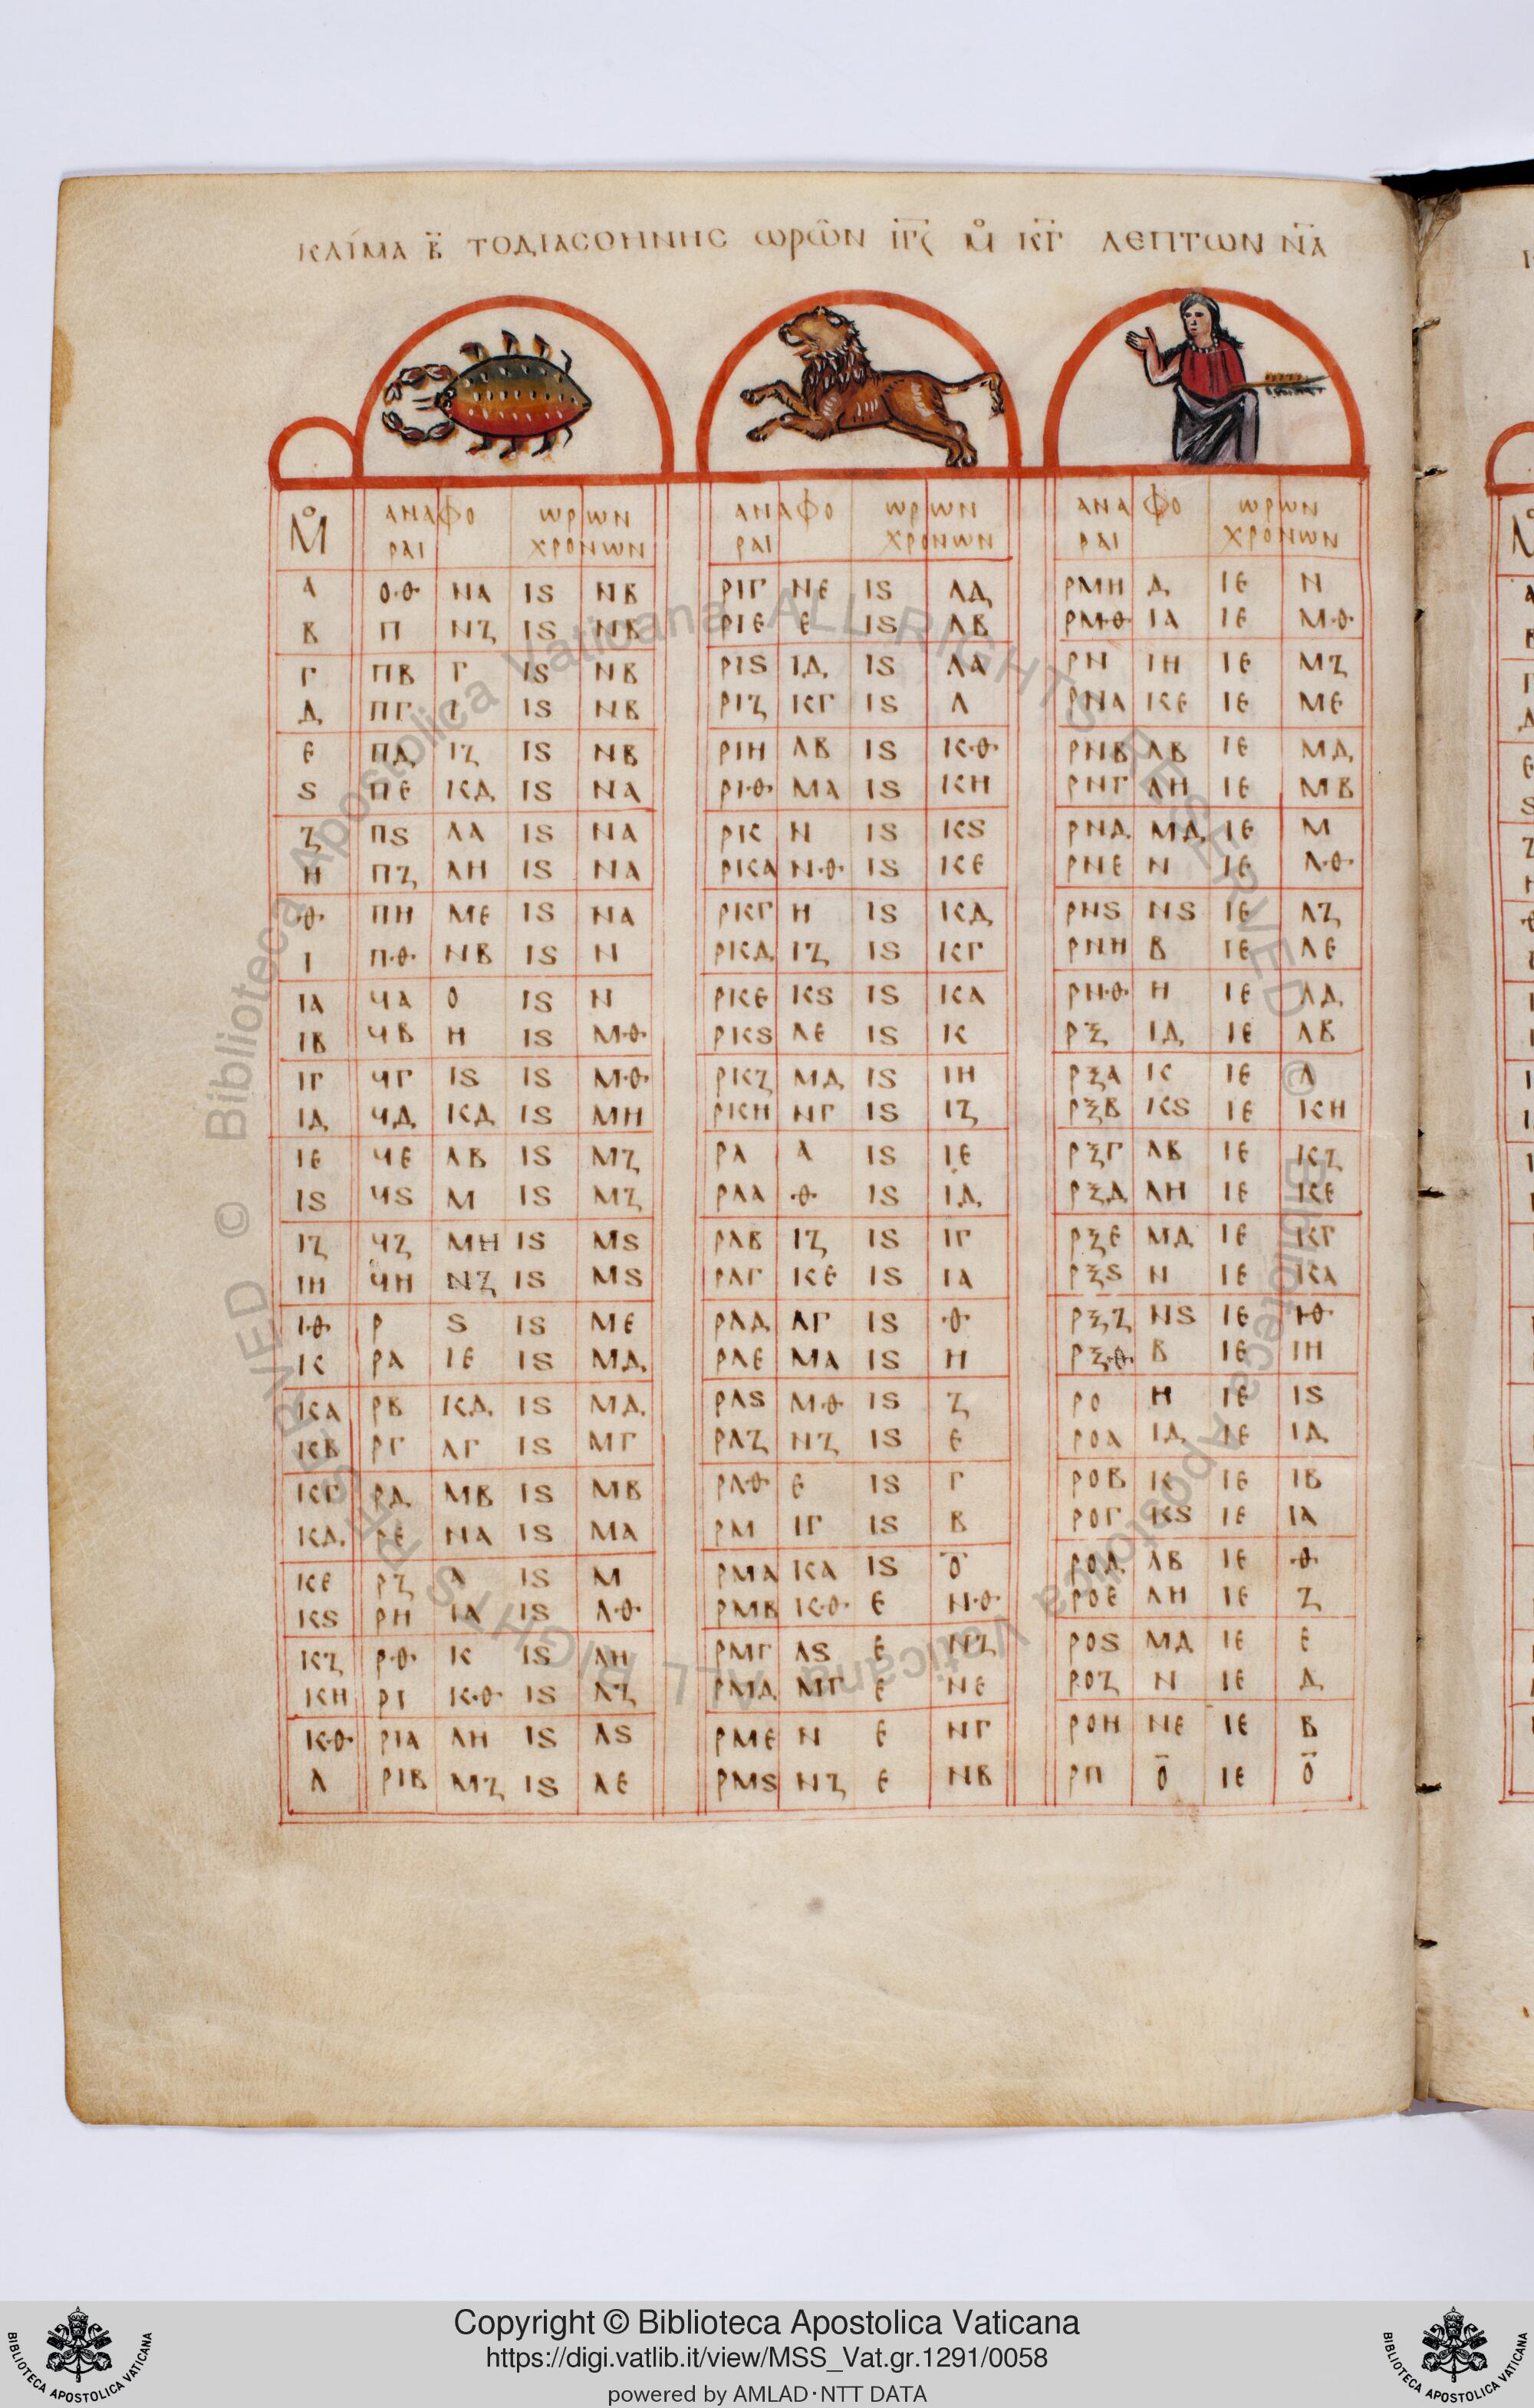 ΚΛΊΜΑ Β̈ ΤΟ ΔΙΑ ϹΟΗΝΗϹ ωρω̃Ν ΙΓϚ Μ̊ ΚΓ ΛΕΠΤΩΝ ΝΑ
Μ̊ ΑΝΑΦΟ ΩΡΩΝ ΑΝΑΦΟ ΩΡΩΝ ΑΝΑΦΟ ΩΡΩΝ
ΡΑΙ ΧΡΟΝΩΝ ΡΑΙ ΧΡΟΝΩΝ ΡΑΙ ΧΡΟΝΩΝ
Α ΟΘ ΝΑ ΙϚ ΝΒ ΡΙΓ ΝΕ ΙϚ ΛΔ ΡΜΗ Δ ΙΕ Ν
Β Π ΝΖ ΙϚ ΝΒ ΡΙΕ Ε ΙϚ ΛΒ ΡΜΘ ΙΑ ΙΕ ΜΘ
Γ ΠΒ Γ ΙϚ ΝΒ ΡΙϚ ΙΔ ΙϚ ΛΑ ΡΝ ΙΗ ΙΕ ΜΖ
Δ ΠΓ Ι ΙϚ ΝΒ ΡΙΖ ΚΓ ΙϚ Λ ΡΝΑ ΚΕ ΙΕ ΜΕ
Ε ΠΔ ΙΖ ΙϚ ΝΒ ΡΙΗ ΛΒ ΙϚ ΚΘ ΡΝΒ ΛΒ ΙΕ ΜΔ
Ϛ ΠΕ ΚΔ ΙϚ ΝΑ ΡΙΘ ΜΑ ΙϚ ΚΗ ΡΝΓ ΛΗ ΙΕ ΜΒ
Ζ ΠϚ ΛΑ ΙϚ ΝΑ ΡΚ Ν ΙϚ ΚϚ ΡΝΔ ΜΔ ΙΕ Μ
Η ΠΖ ΛΗ ΙϚ ΝΑ ΡΚΑ ΝΘ ΙϚ ΚΕ ΡΝΕ Ν ΙΕ ΛΘ
Θ ΠΗ ΜΕ ΙϚ ΝΑ ΡΚΓ Η ΙϚ ΚΔ ΡΝϚ ΝϚ ΙΕ ΛΖ
Ι ΠΘ ΝΒ ΙϚ Ν ΡΚΔ ΙΖ ΙϚ ΚΓ ΡΝΗ Β ΙΕ ΛΕ
ΙΑ ϞΑ Ο ΙϚ Ν ΡΚΕ ΚϚ ΙϚ ΚΑ ΡΝΘ Η ΙΕ ΛΔ
ΙΒ ϞΒ Η ΙϚ ΜΘ ΡΚϚ ΛΕ ΙϚ Κ ΡΞ ΙΔ ΙΕ ΛΒ
ΙΓ ϞΓ ΙϚ ΙϚ ΜΘ ΡΚΖ ΜΔ ΙϚ ΙΗ ΡΞΑ Κ ΙΕ Λ
ΙΔ ϞΔ ΚΔ ΙϚ ΜΗ ΡΚΗ ΝΓ ΙϚ ΙΖ ΡΞΒ ΚϚ ΙΕ ΚΗ
ΙΕ ϞΕ ΛΒ ΙϚ ΜΖ ΡΛ Α ΙϚ ΙΕ ΡΞΓ ΛΒ ΙΕ ΚΖ
ΙϚ ϞϚ Μ ΙϚ ΜΖ ΡΛΑ Θ ΙϚ ΙΔ ΡΞΔ ΛΗ ΙΕ ΚΕ
ΙΖ ϞΖ ΜΗ ΙϚ ΜϚ ΡΛΒ ΙΖ ΙϚ ΙΓ ΡΞΕ ΜΔ ΙΕ ΚΓ
ΙΗ ϞΗ ΝΖ ΙϚ ΜϚ ΡΛΓ ΚΕ ΙϚ ΙΑ ΡΞϚ Ν ΙΕ ΚΑ
ΙΘ Ρ Ϛ ΙϚ ΜΕ ΡΛΔ ΛΓ ΙϚ Θ ΡΞΖ ΝϚ ΙΕ ΙΘ
Κ ΡΑ ΙΕ ΙϚ ΜΔ ΡΛΕ ΜΑ ΙϚ Η ΡΞΘ Β ΙΕ ΙΗ
ΚΑ ΡΒ ΚΔ ΙϚ ΜΔ ΡΛϚ ΜΘ ΙϚ Ζ ΡΟ Η ΙΕ ΙϚ
ΚΒ ΡΓ ΛΓ ΙϚ ΜΓ ΡΛΖ ΝΖ ΙϚ Ε ΡΟΑ ΙΔ ΙΕ ΙΔ
ΚΓ ΡΔ ΜΒ ΙϚ ΜΒ ΡΛΘ Ε ΙϚ Γ ΡΟΒ Κ ΙΕ ΙΒ
ΚΔ ΡΕ ΝΑ ΙϚ ΜΑ ΡΜ ΙΓ ΙϚ Β ΡΟΓ ΚϚ ΙΕ ΙΑ
ΚΕ ΡΖ Α ΙϚ Μ ΡΜΑ ΚΑ ΙϚ Ο̄ ΡΟΔ ΛΒ ΙΕ Θ
ΚϚ ΡΗ ΙΑ ΙϚ ΛΘ ΡΜΒ ΚΘ Ε ΝΘ ΡΟΕ ΛΗ ΙΕ Ζ
ΚΖ ΡΘ Κ ΙϚ ΛΗ ΡΜΓ ΛϚ Ε ΝΖ ΡΟϚ ΜΔ ΙΕ Ε
ΚΗ ΡΙ ΚΘ ΙϚ ΛΖ ΡΜΔ ΜΓ Ε ΝΕ ΡΟΖ Ν ΙΕ Δ
ΚΘ ΡΙΑ ΛΗ ΙϚ ΛϚ ΡΜΕ Ν Ε ΝΓ ΡΟΗ ΝΕ ΙΕ Β
Λ ΡΙΒ ΜΖ ΙϚ ΛΕ ΡΜϚ ΝΖ Ε ΝΒ ΡΠ Ο̄ ΙΕ Ο̄
© Biblioteca Apostolica Vaticana ALL RIGHTS RESERVED
Copyright © Biblioteca Apostolica Vaticana
https://digi.vatlib.it/view/MSS_Vat.gr.1291/0058
powered by AMLAD·NTT DATA
BIBLIOTECA APOSTOLICA VATICANA
BIBLIOTECA APOSTOLICA VATICANA